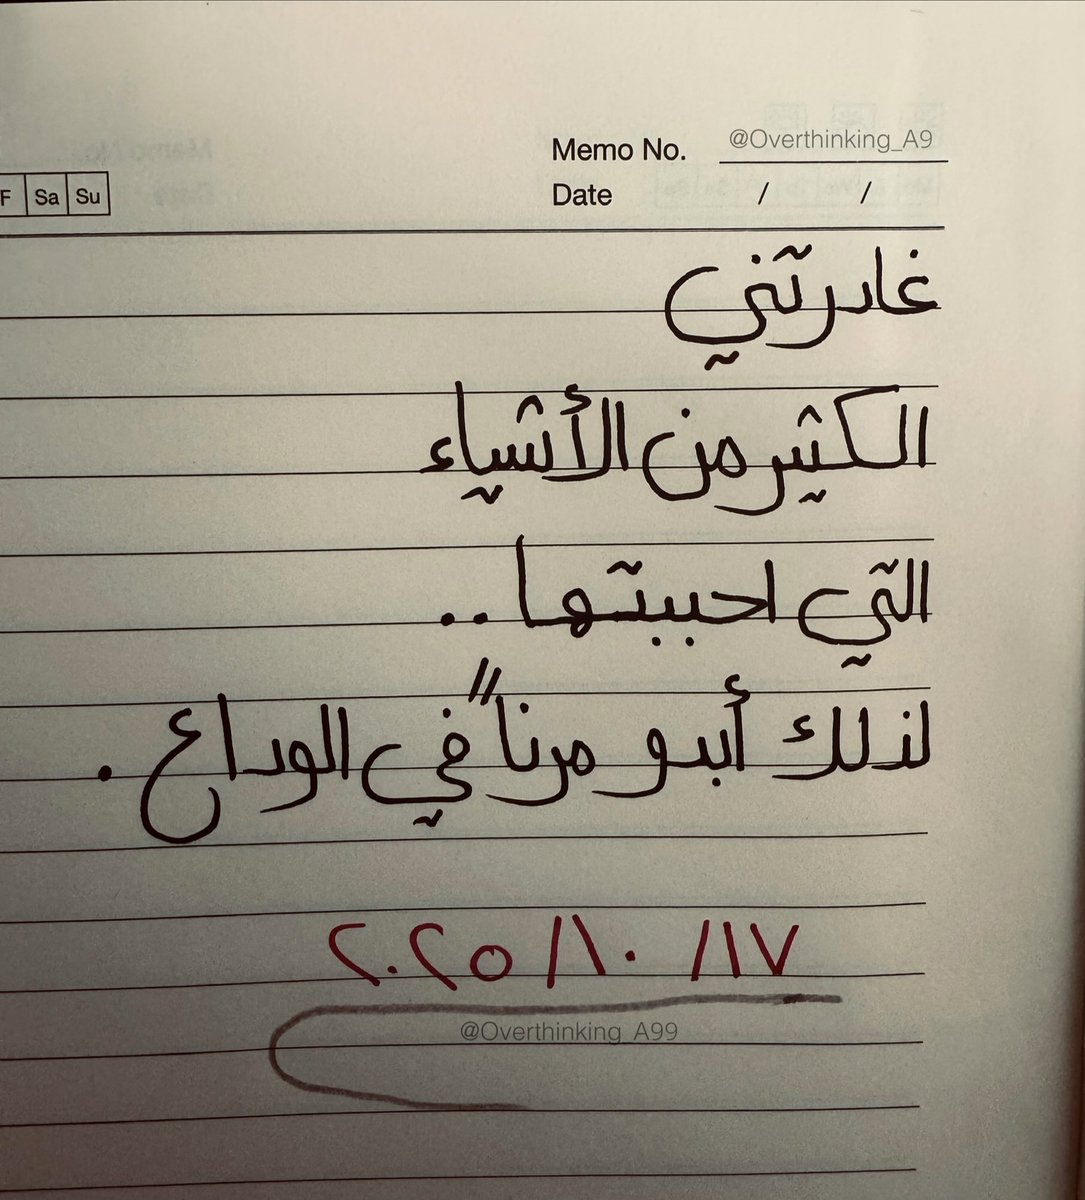 Memo No. @Overthinking_A9
F Sa Su
Date / /
غادرتني
الكثير من الأشياء
التي احببتها ..
لذلك أبدو مرناً في الوداع .
١٧/ ١٠/ ٢٠٢٥
@Overthinking_A99